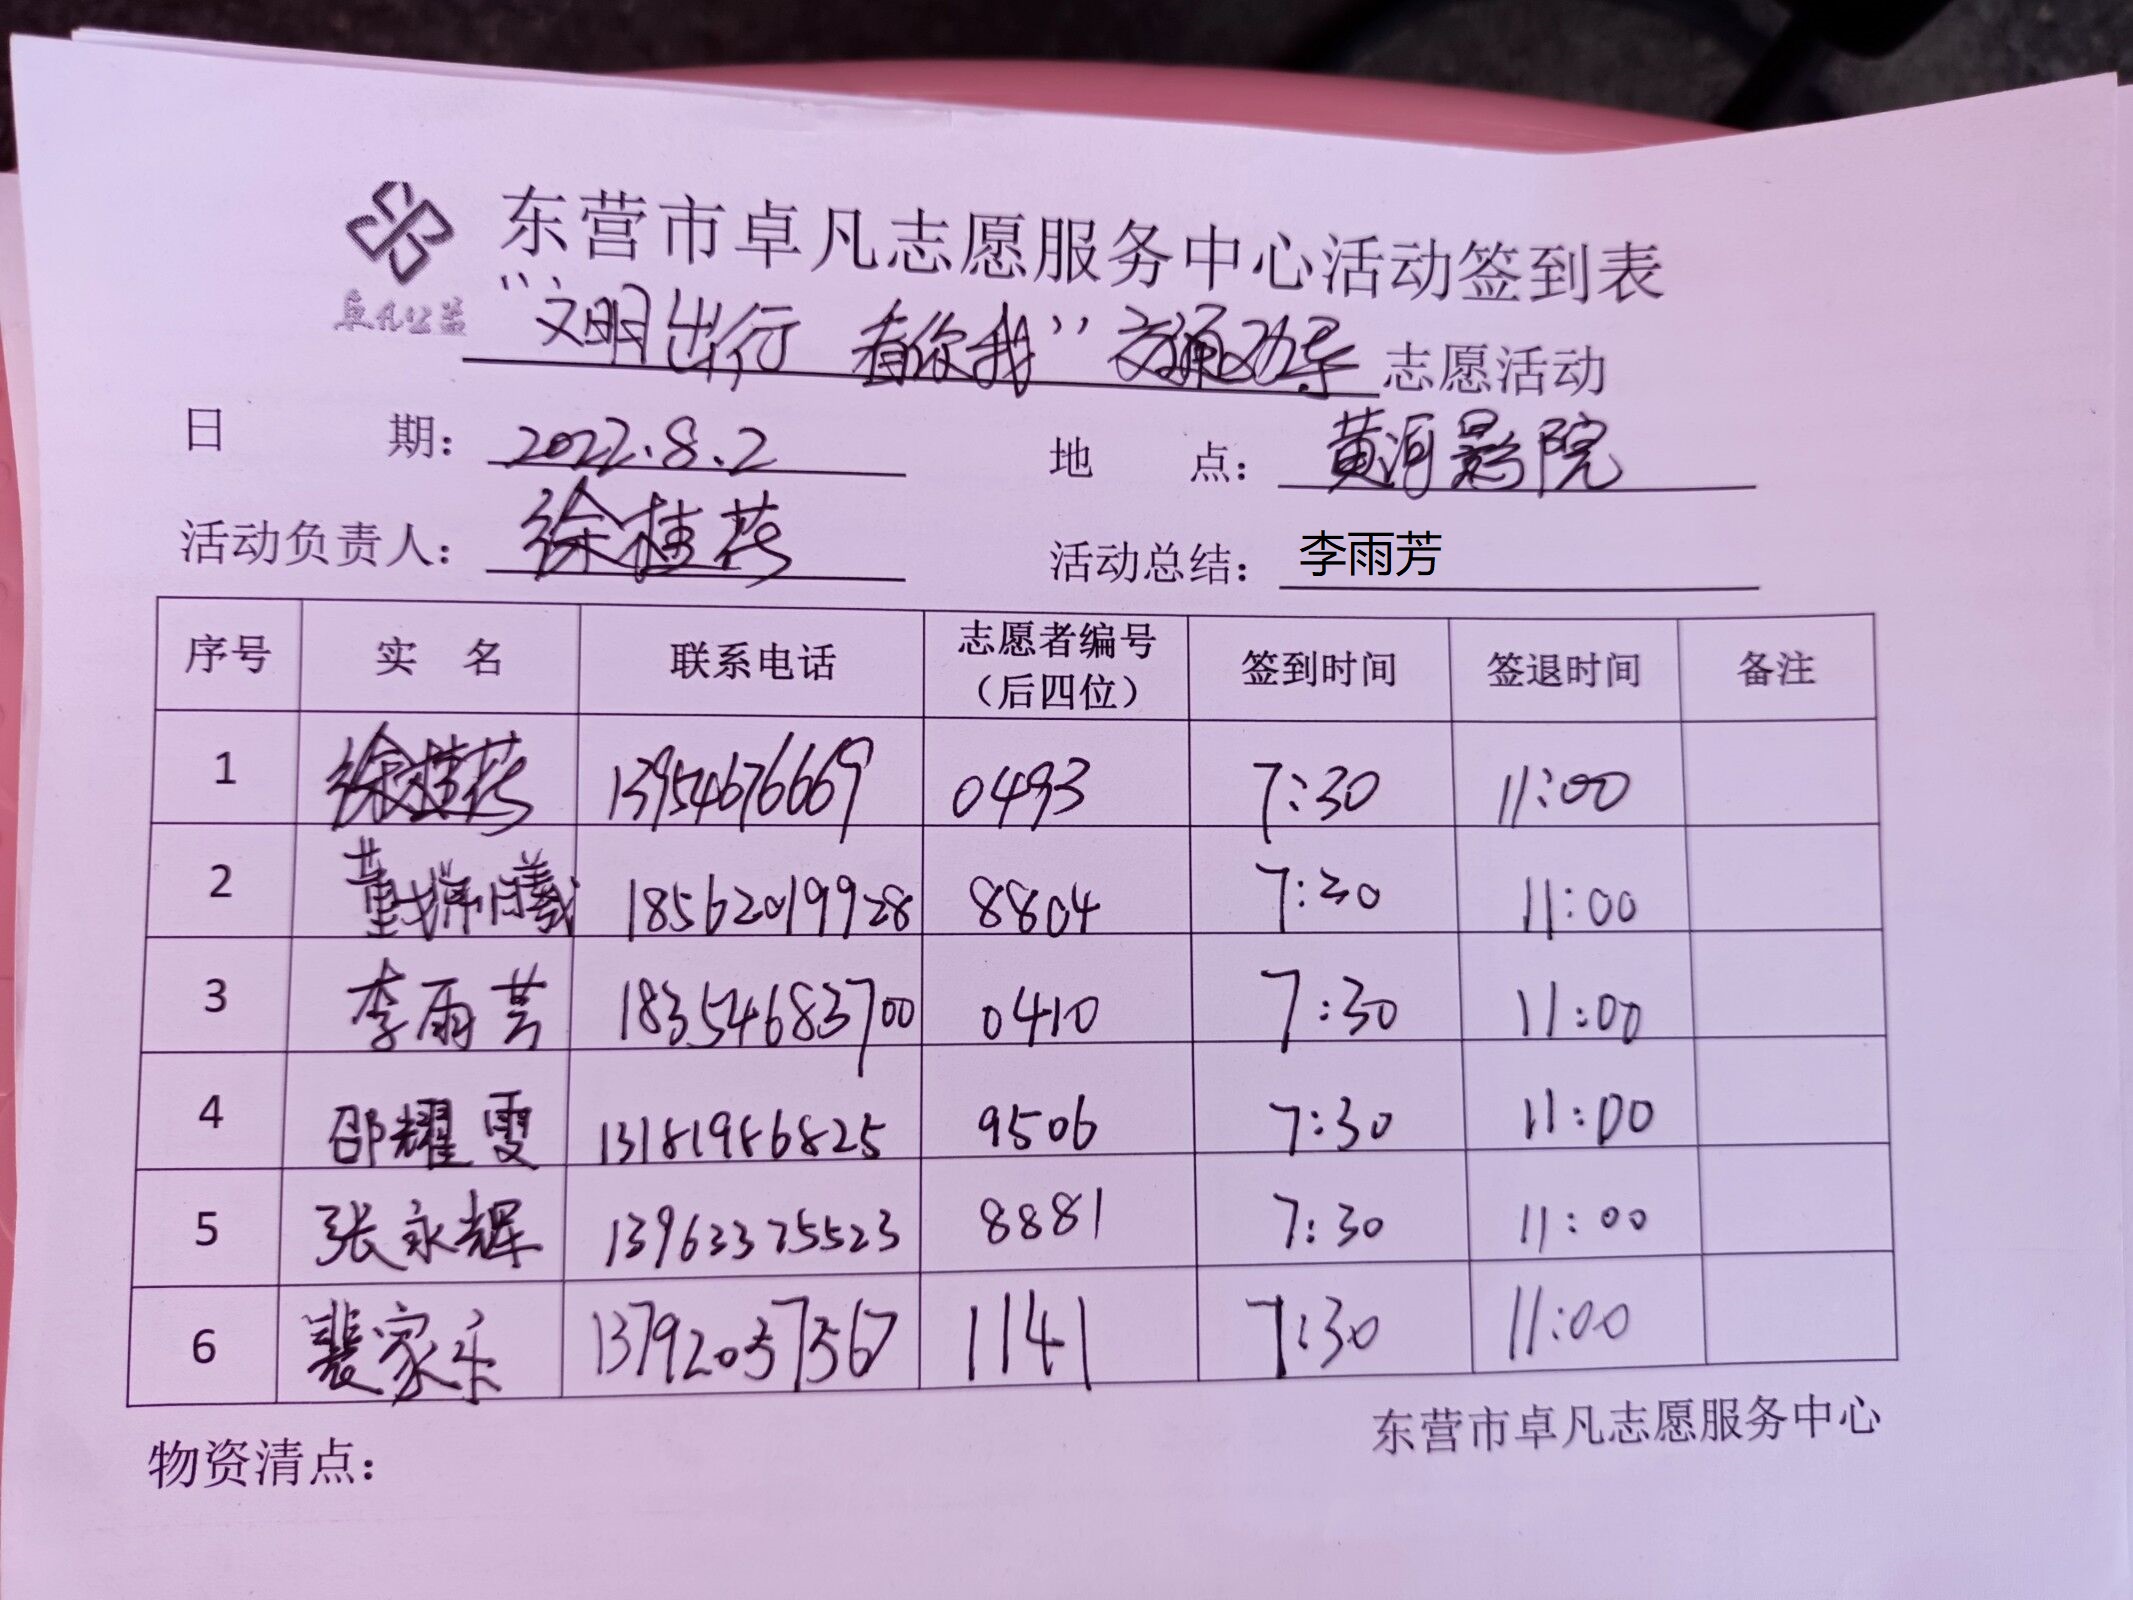 东营市卓凡志愿服务中心活动签到表
卓凡公益
“文明出行 有你我”交通劝导 志愿活动
日 期： 2022.8.2 地 点： 黄河影院
活动负责人： 徐桂花 活动总结： 李雨芳
序号 实 名 联系电话 志愿者编号（后四位） 签到时间 签退时间 备注
1 徐桂花 13954676669 0493 7:30 11:00
2 董 曦 18562019928 8804 7:30 11:00
3 李雨芸 18354683700 0410 7:30 11:00
4 邵耀雯 13181986825 9506 7:30 11:00
5 张永辉 13963375523 8881 7:30 11:00
6 裴家乐 13792037567 1141 7:30 11:00
东营市卓凡志愿服务中心
物资清点：